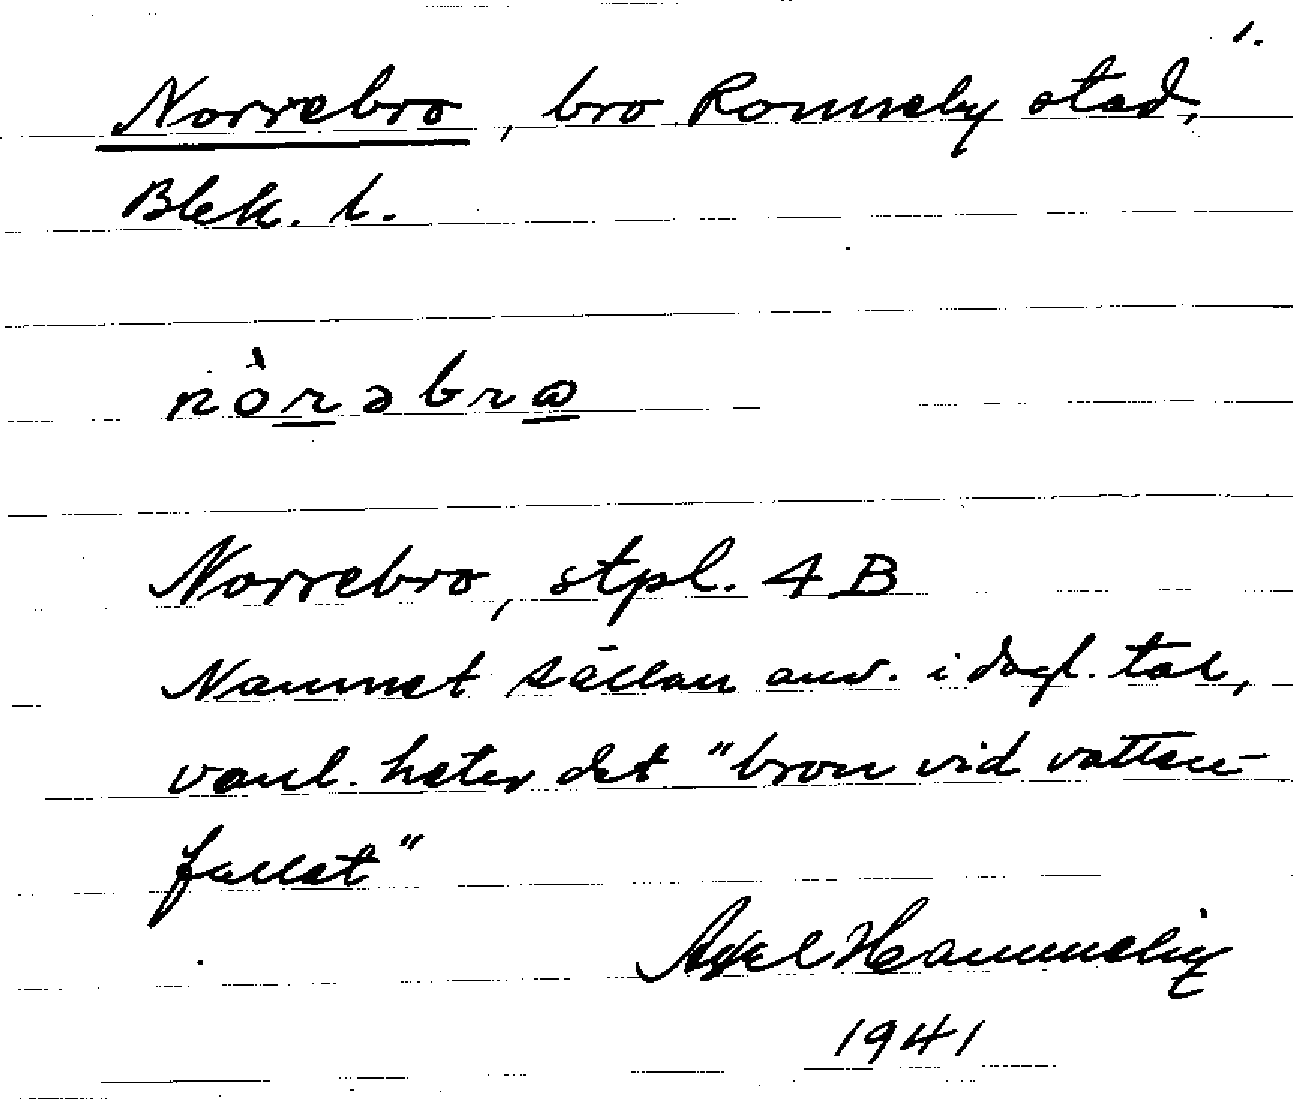 1.
Norrebro, bro Ronneby stad,
Blek. l.
nòrəbrω
Norrebro, stpl. 4 B
Namnet sällan anv. i dagl. tal,
vanl. heter det "bron vid vatten-
fallet"
Axel Hammelig
1941